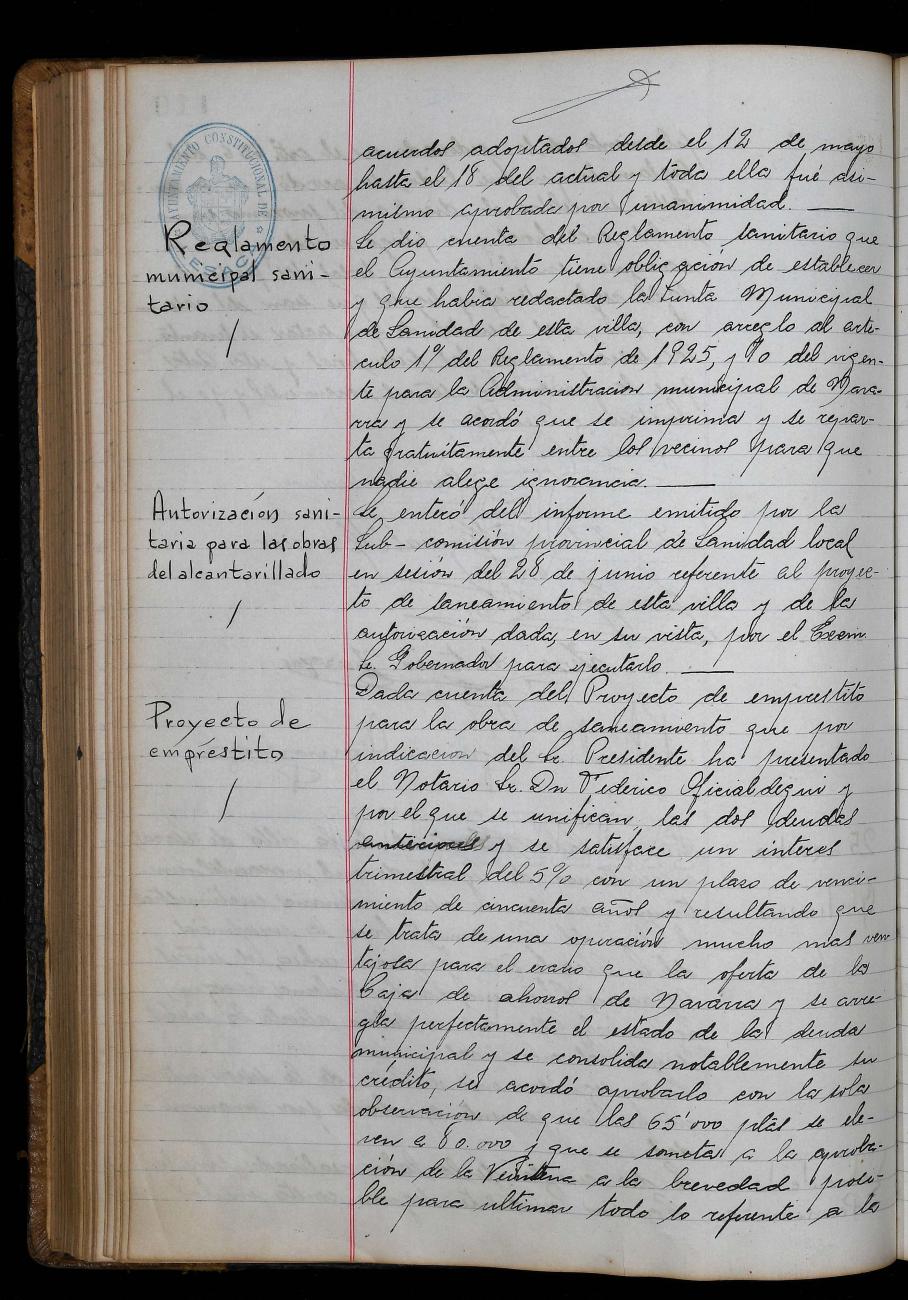 AYUNTAMIENTO CONSTITUCIONAL DE
acuerdos adoptados desde el 12 de mayo
hasta el 18 del actual y toda ella fué asi-
mismo aprobada por unanimidad. —
Reglamento
municipal sani-
tario
Se dio cuenta del Reglamento sanitario que
el Ayuntamiento tiene obligación de establecer
y que habia redactado la Junta Municipal
de Sanidad de esta villa, con arreglo al artí-
culo 1º del Reglamento de 1925, y del vigen-
te para la Administracion municipal de Nava-
rra y se acordó que se imprima y se repar-
ta gratuitamente entre los vecinos para que
nadie alege ignorancia. —
Autorización sani-
taria para las obras
del alcantarillado
Se enteró del informe emitido por la
Sub-comisión provincial de Sanidad local
en sesión del 28 de junio referente al proyec-
to de saneamiento de esta villa y de la
autorización dada, en su vista, por el Excm.
Sr. Gobernador para ejecutarlo. —
Proyecto de
empréstito
Dada cuenta del Proyecto de emprestito
para la obra de saneamiento que por
indicacion del Sr. Presidente ha presentado
el Notario Sr. Dn Federico Oficialdegui y
por el que se unifican las dos deudas
anteriores y se satisface un interes
trimestral del 5% con un plazo de venci-
miento de cincuenta años y resultando que
se trata de una operación mucho mas ven
tajosa para el erario que la oferta de la
Caja de ahorros de Navarra y se arre-
gla perfectamente el estado de la deuda
municipal y se consolida notablemente su
crédito, se acordó aprobarlo con la sola
observación de que las 65'000 ptas se ele-
ven a 80.000 y que se someta a la aproba-
ción de la Veintena a la brevedad posi-
ble para ultimar todo lo referente a la